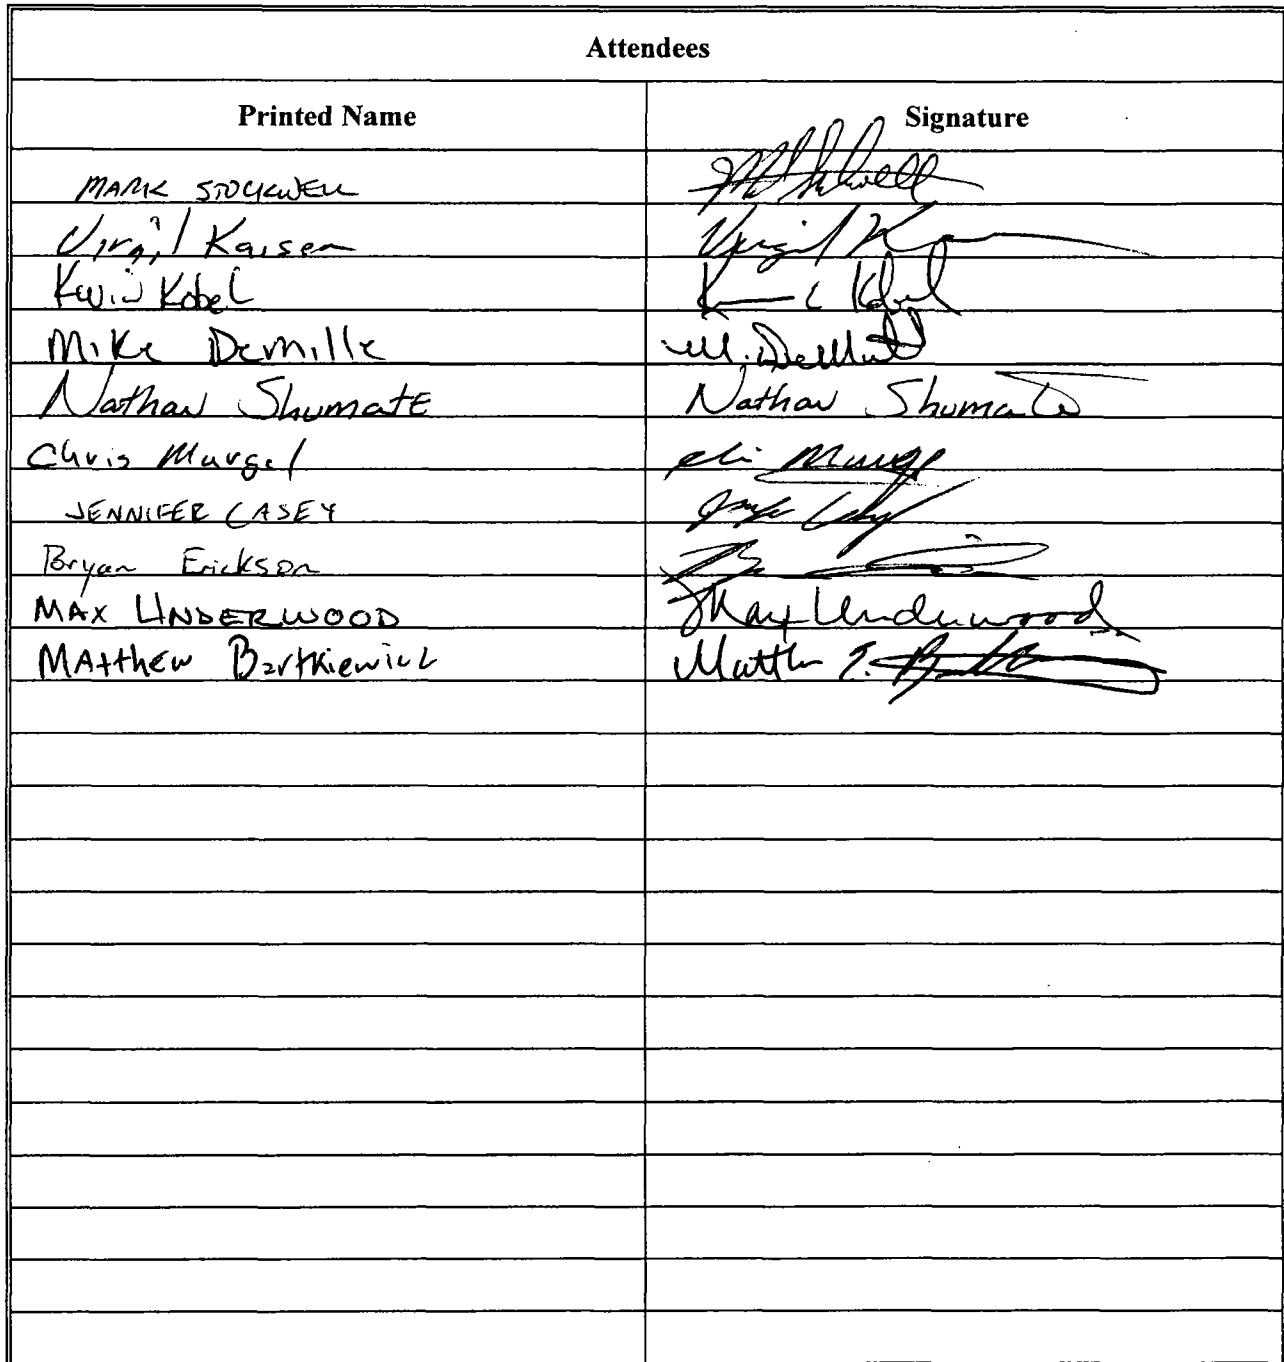 Attendees
Printed Name Signature
MARK STOCKWELL
Virgil Kaiser Virgil K
Kevin Kobel K C Kobel
Mike Demille M. DeMille
Nathan Shumate Nathan Shumate
Chris Murgel
JENNIFER CASEY
Bryan Erickson
MAX UNDERWOOD Max Underwood
MAtthew Bartkiewicz Matth